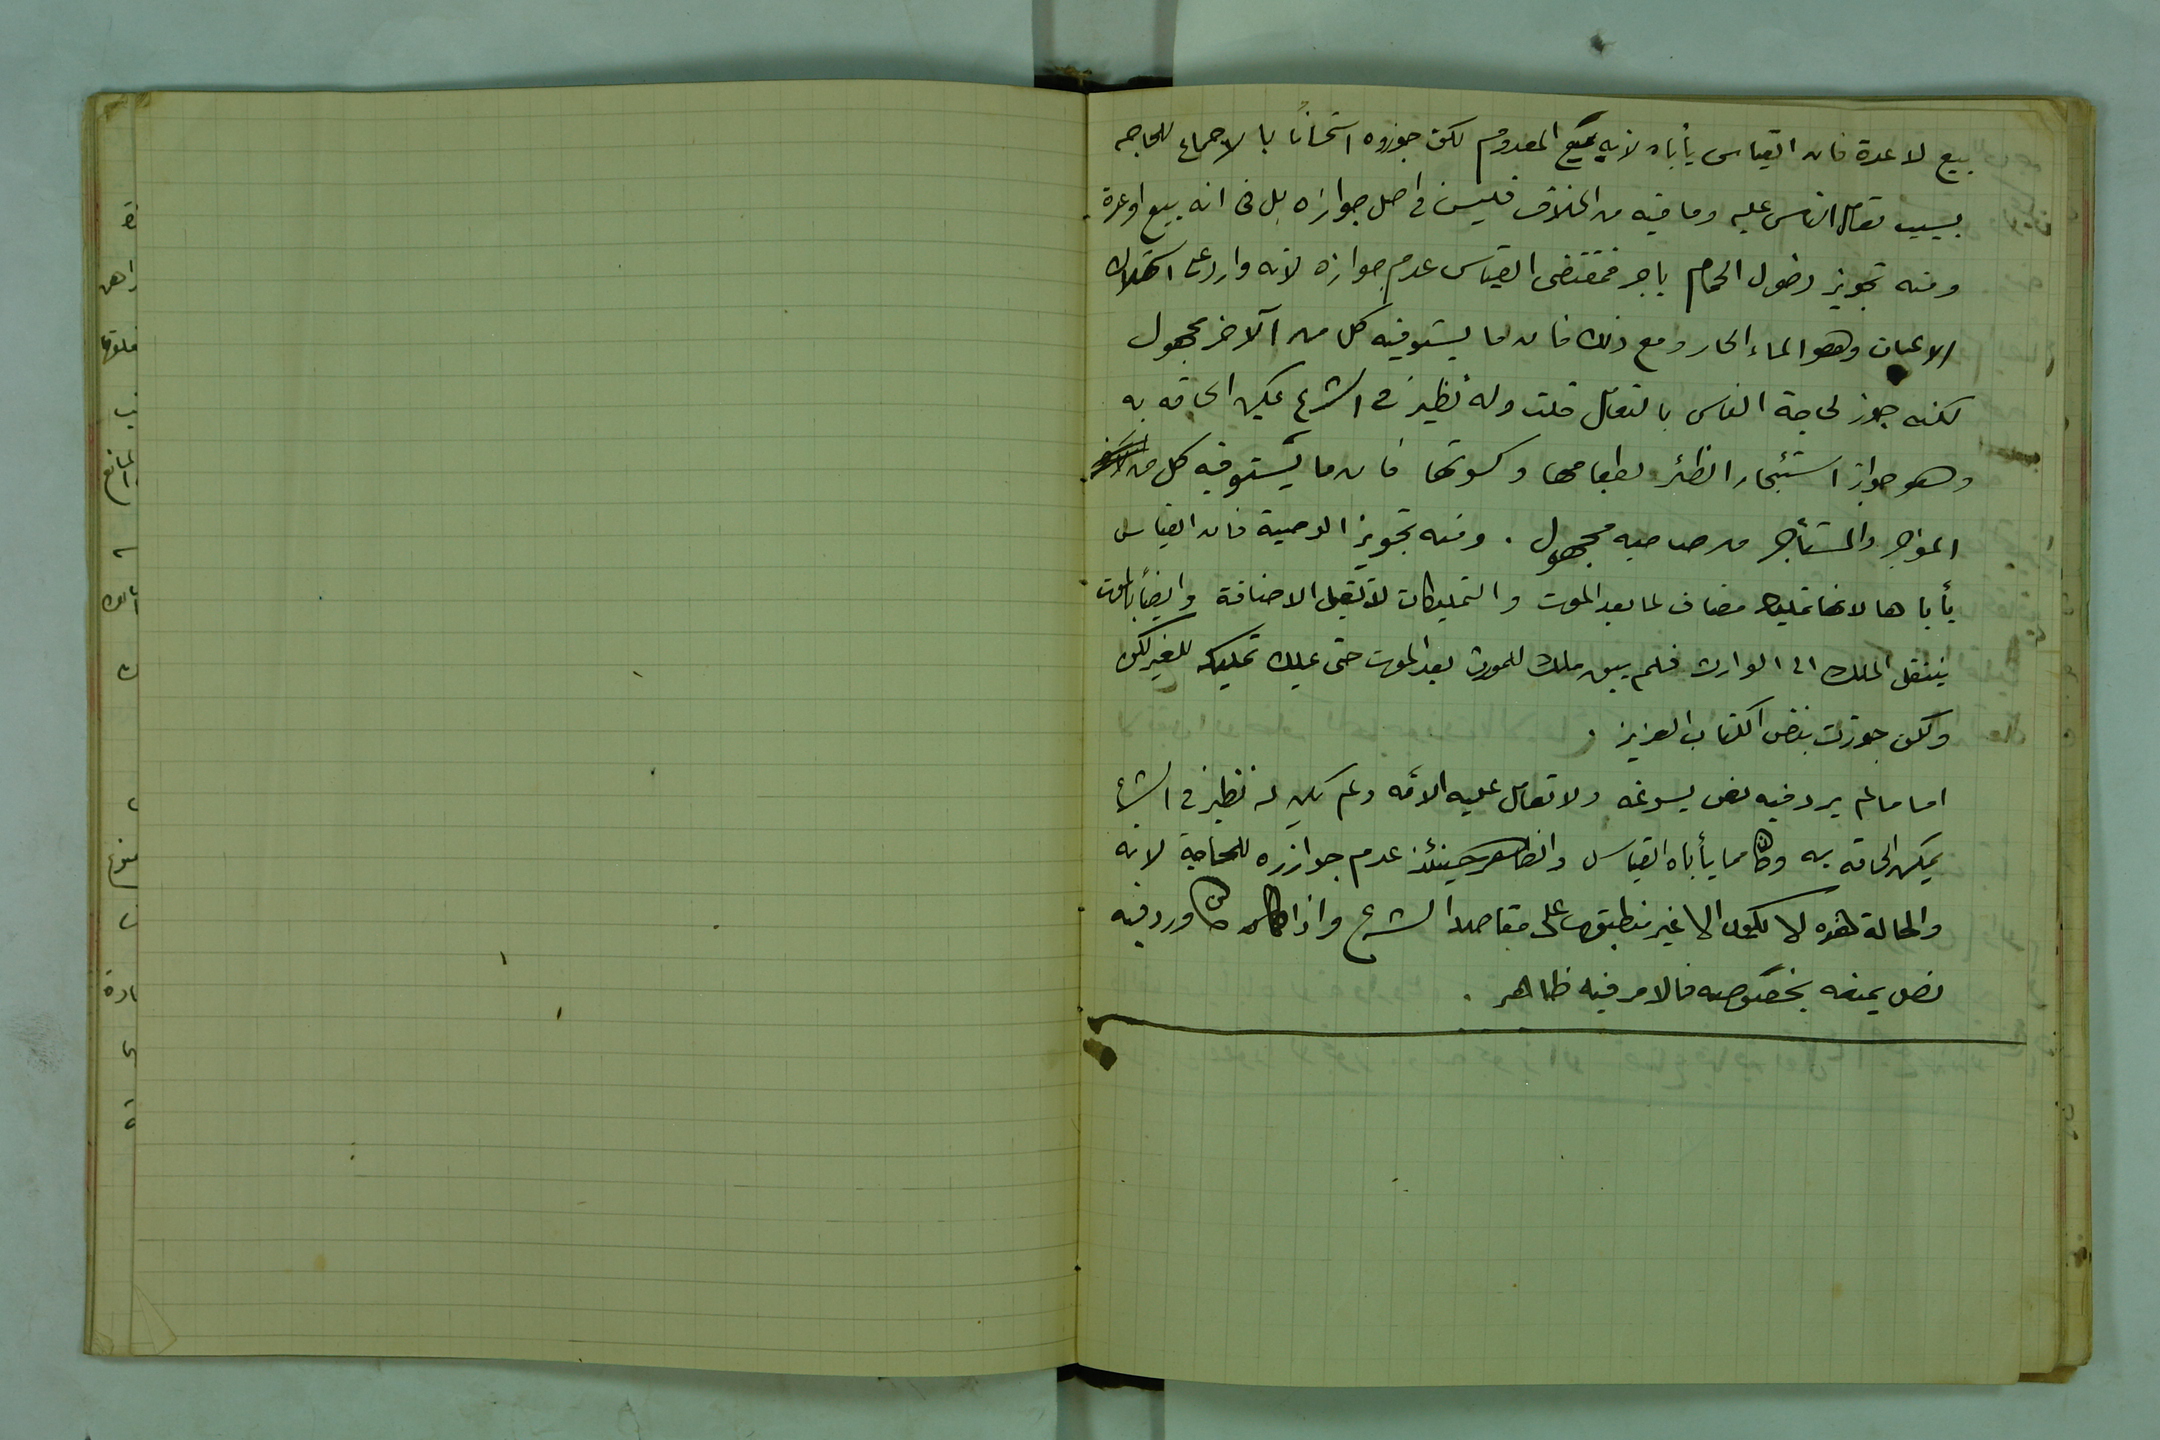 بيع لا عدة فان القياس يأباه لانه بيع المعدوم لكن جوزوه استحسانًا بالاجماع للحاجة
بسبب تعامل الناس عليه وما فيه من الخلاف فليس في اصل جوازه بل في انه بيع او عدة
ومنه تجويز دخول الحمام باجر فمقتضى القياس عدم جوازه لانه وارد على استهلاك
الاعيان وهو الماء الحار ومع ذلك فان ما يستوفيه كل من الآخر مجهول
لكنه جوز لحاجة الناس بالتعامل قلت وله نظير في الشرع يمكن الحاقه به
وهو جواز استئجار الظئر بطعامها وكسوتها فان ما يستوفيه كل من
المؤاجر والمستأجر من صاحبه مجهول . ومنه تجويز الوصية فان القياس
يأباها لانها تمليك مضاف لما بعد الموت والتمليكات لا تقبل الاضافة وايضًا بالموت
ينتقل الملك الى الوارث فلم يبق ملك للمورث بعد الموت حتى يملك تمليكه للغير لكن
ولكن جوزت بنص الكتاب العزيز .
اما ما لم يرد فيه نص يسوغه ولا تعامل عليه الامّة ولم يكن له نظير في الشرع
يمكن الحاقه به وكان مما يأباه القياس والظاهر حينئذ عدم جوازه للحاجة لانه
والحالة هذه لا يكون الا غير منطبق على مقاصد الشرع واذا كان ورد فيه
نص يمنعه بخصوصه فالامر فيه ظاهر .